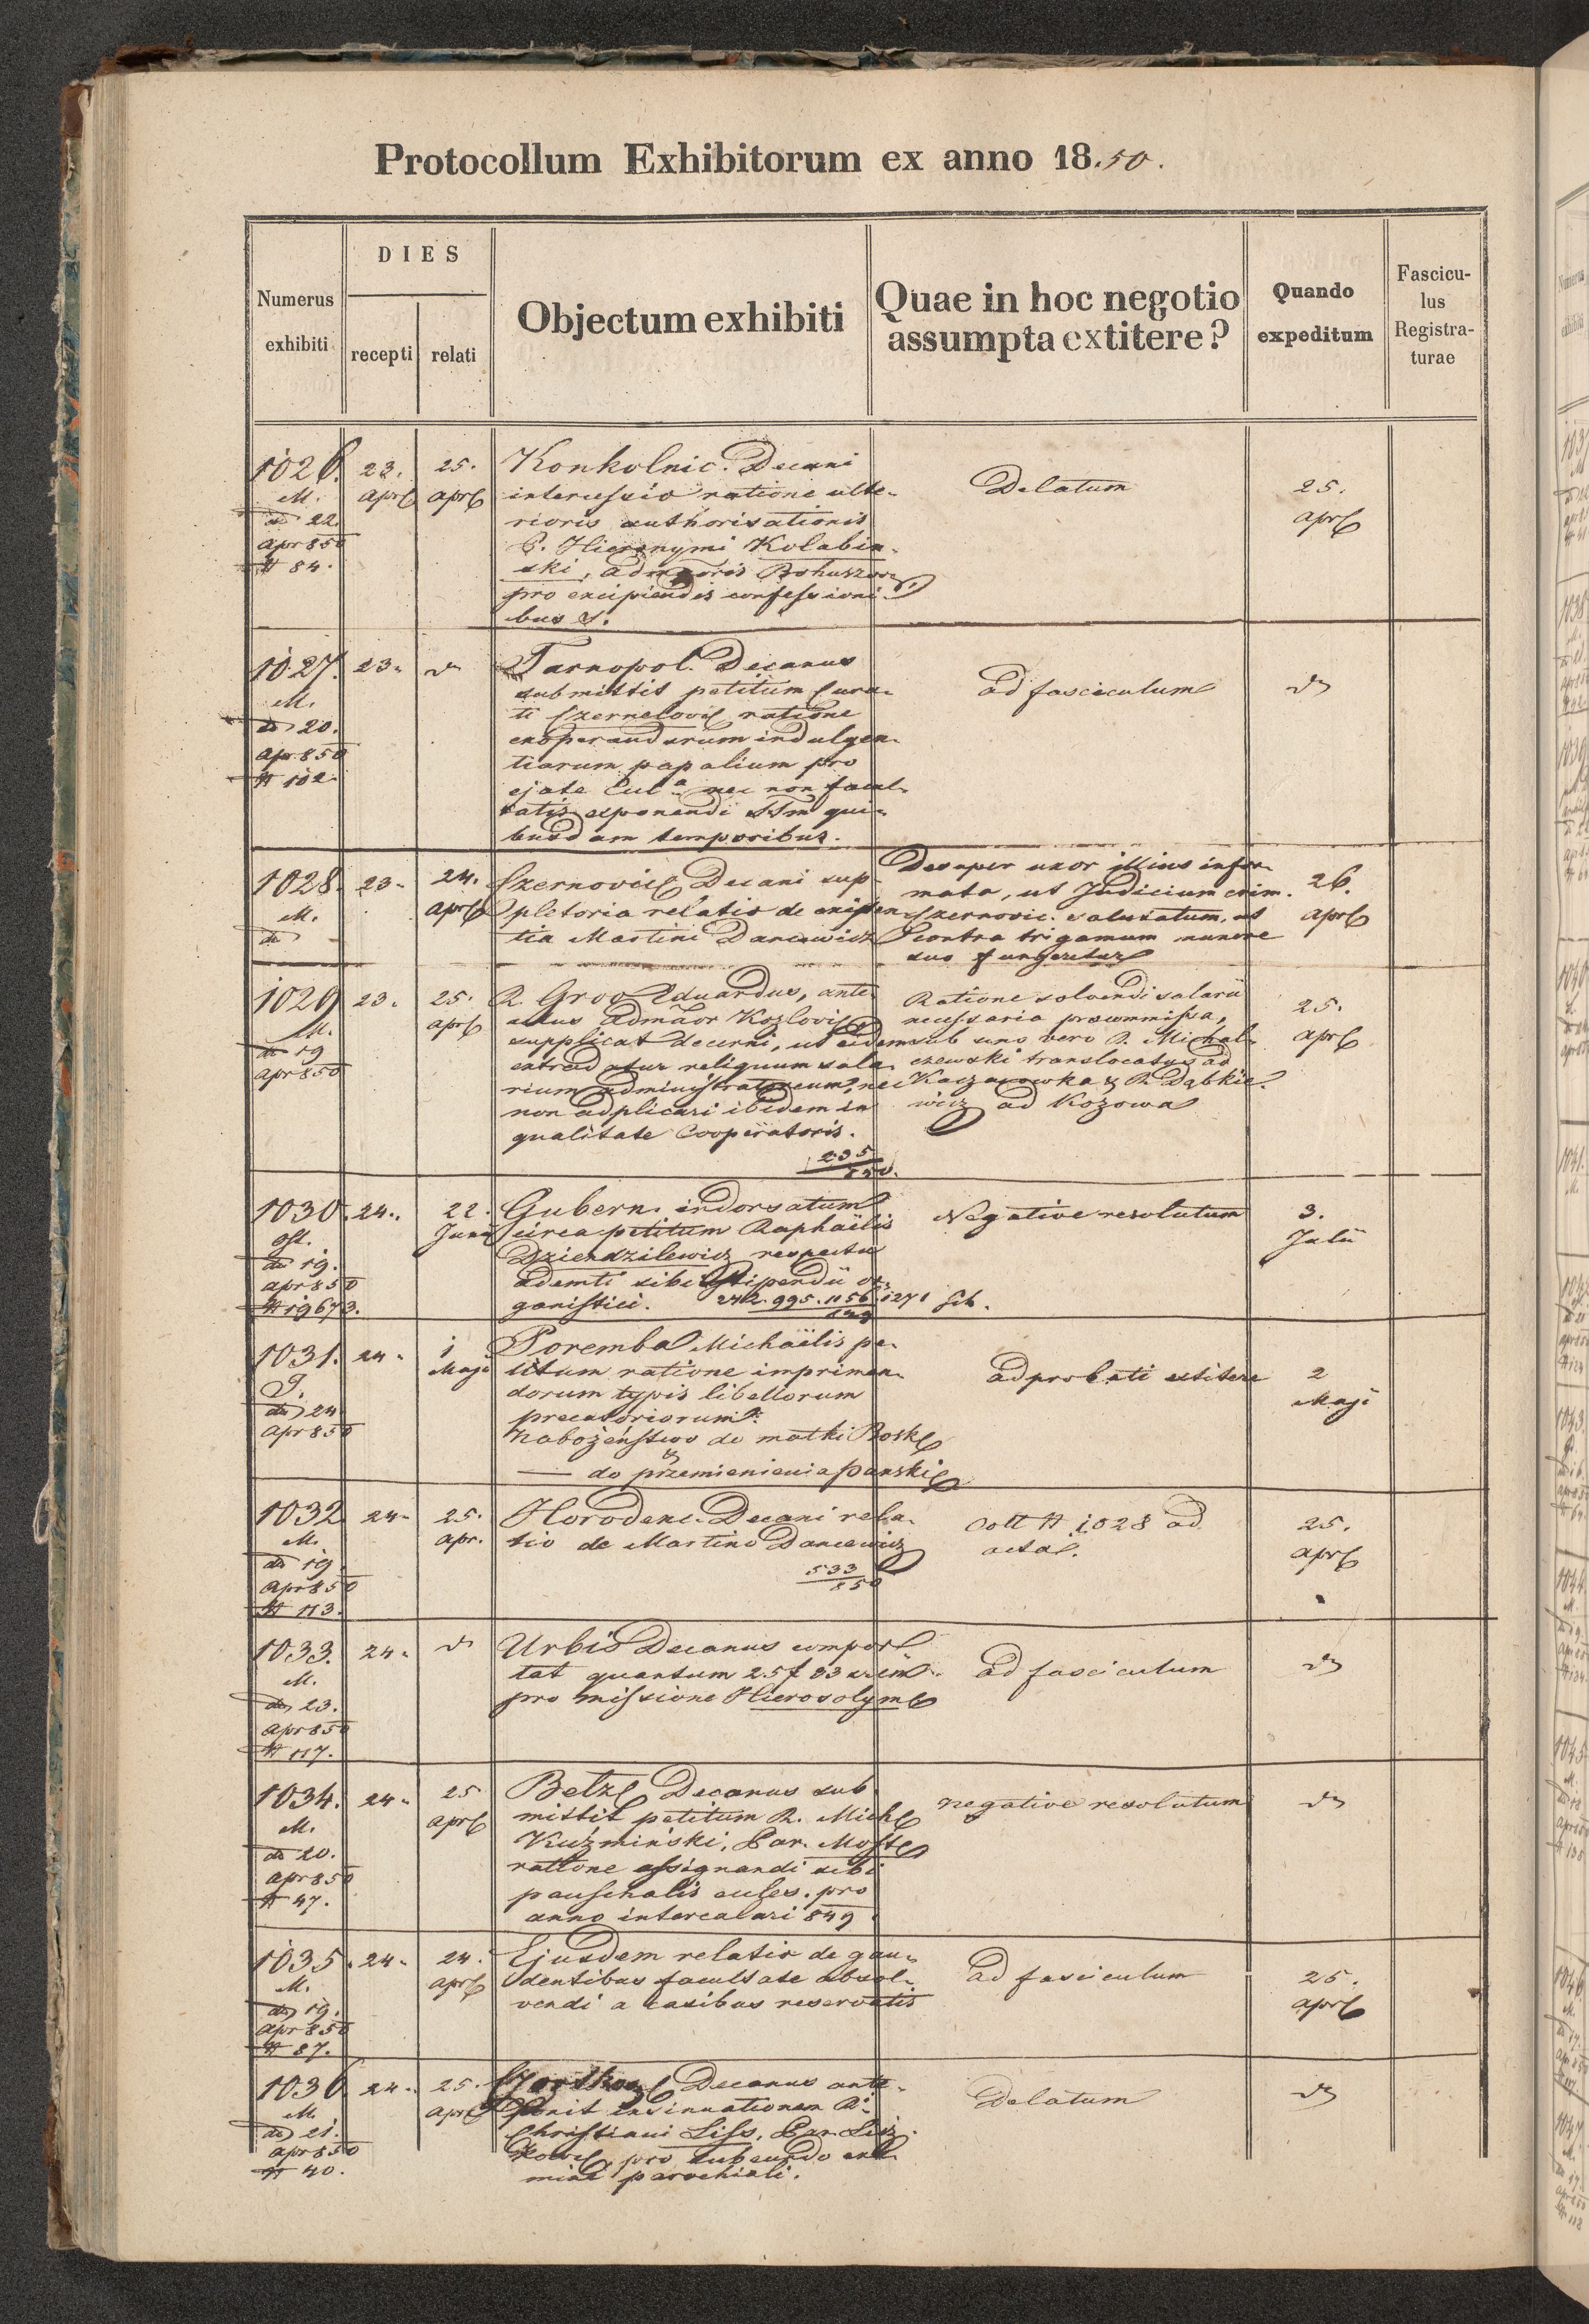 Protocollum Exhibitorum ex anno 18.50.
Numerus exhibiti
DIES
recepti
relati
Objectum exhibiti
Quae in hoc negotio assumpta extitere?
Quando expeditum
Fascicu-
lus
Registra-
turae
1026.
M.
22.
apr 850
# 84.
23.
apr
25.
apr
Konkolnic. Decani
intercessio ratione ulte-
rioris authorisationis
P. Hieronymi Kolabin-
ski,
pro excipiendis confessioni-
bus S.
Delatum
25.
apr
1027.
M.
20.
apr 850
# 102.
23.
Tarnopol. Decanus
submittit petitum Cura-
ti ratione
exoperandarum indulgen-
tiarum papalium pro
nec non facul-
tatis exponendi SSm qui-
busdam temporibus.
ad fasciculum
1028.
M.
23.
24.
apr
Czernovic Decani sup-
pletoria relatio de existen-
tia Martini Dancewicz
Desuper uxor illius infor-
mata, ut Judicium crim.
Czernovic. salutatum, ut
contra trigamum munere
suo fungeretur
26.
apr
1029
M.
19
apr 850
23.
25.
apr
R. Groo Eduardus, ante-
Kozlovi
supplicat decerni, ut eidem
extradatur reliquum sala-
rium nec
non adplicari ibidem in
qualitate Cooperatoris.
235
850.
Ratione solvendi salarii
necessaria praecommissa,
sub uno vero R. Michal-
czewski translocatus ad
Kaczanowka & R. Dąbkie-
wicz ad Kozowa
25.
apr
1030.
19.
apr 850
# 19673.
24.
22.
Junii
Gubern. indorsatum
circa petitum Raphaëlis
Dziendzilewicz respectu
ademti sibi stipendii or-
ganistici.
242. 995. 1156. 1271
Negative resolutum
3.
Julii
1031.
24
apr 850
24.
1
Maji
Poremba Michaëlis pe-
titum ratione imprimen-
dorum typis libellorum
precatoriorum:
Nabożeństwo do matki Bosk
&
— do przemienienia pańskie
adprobati extitere
2
Maji
1032
M.
19.
apr 850
# 113.
24.
25.
apr.
Horodenc. Decani rela-
tio de Martino Dancewicz
533
850
# 1028 ad
acta.
25.
apr
1033.
M.
23.
apr 850
# 117.
24.
Urbis Decanus compor-
tat quantum 25 f 33
pro missione Hierosolym
ad fasciculum
1034.
M.
20.
apr 850
# 47.
24.
25
apr
Belz Decanus sub-
mittit petitum R. Mich
Kuźmiński, Par. Most
ratione assignandi sibi
pauschalis eccles. pro
anno intercalari 849
negative resolutum
1035.
M.
19.
apr 850
# 87.
24.
24.
apr
Ejusdem relatio de gau-
dentibus facultate absol-
vendi a casibus reservatis
ad fasciculum
25.
apr
1036
M.
21.
apr 850
# 40.
24.
25.
apr
Decanus ante-
ponit insinuationem R.
Christiani Liss, Par.
pro subeundo exa-
mine parochiali.
Delatum